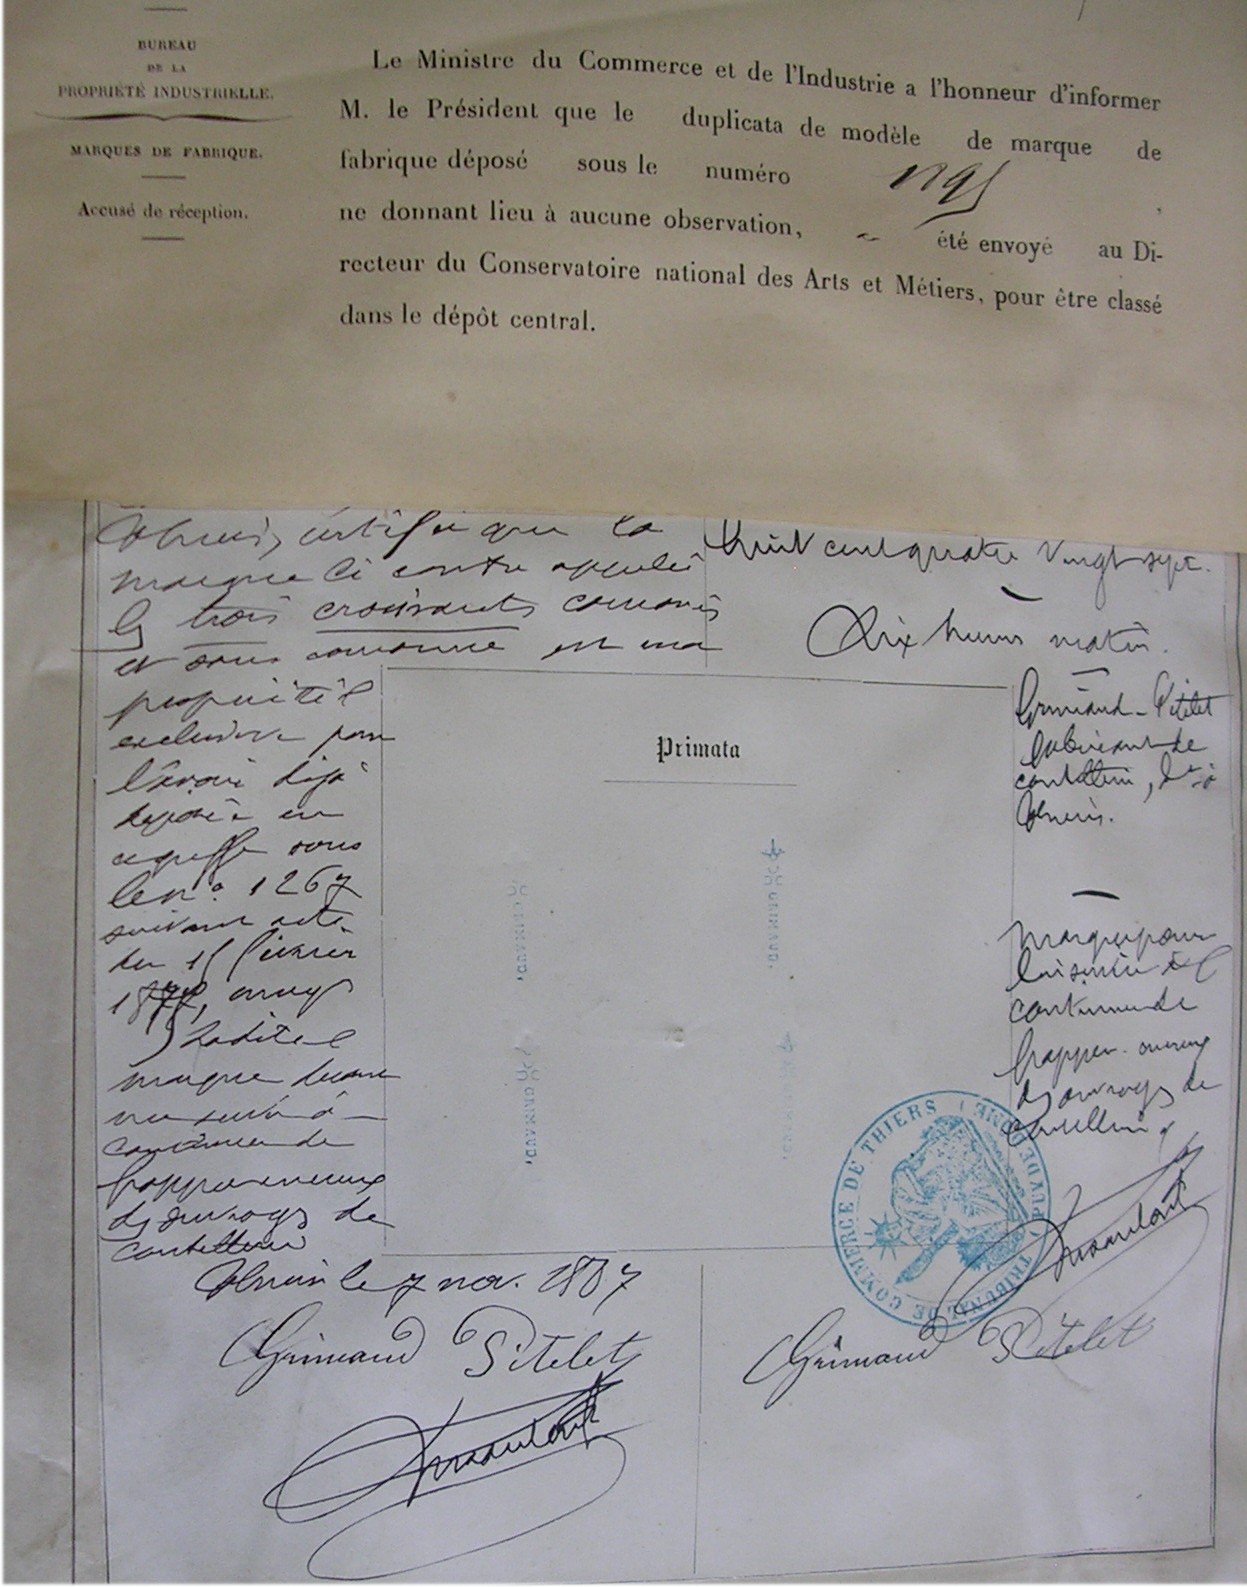 BUREAU
DE LA
PROPRIÉTÉ INDUSTRIELLE.
MARQUES DE FABRIQUE.
Accusé de réception.
Le Ministre du Commerce et de l'Industrie a l'honneur d'informer
M. le Président que le duplicata de modèle de marque de
fabrique déposé sous le numéro
ne donnant lieu à aucune observation, a été envoyé au Di-
recteur du Conservatoire national des Arts et Métiers, pour être classé
dans le dépôt central.
Thiers, certifie que la
marque ci contre appelée
les trois croissants couronnés
et sous couronne est ma
propriété
exclusive pour
l'avoir déjà
déposée en
ce greffe sous
le n° 1267
suivant acte
du 15 février
marque devant
me servir à
continuer de
frapper
des ouvrages de
coutellerie
Thiers le 7 nov. 1887
Grimaud Pitelet
huit cent quatre vingt sept.
Dix heures matin.
Primata
Grimaud-Pitelet
fabricant de
coutellerie, dt à
Thiers.
marque pour
lui servir à
continuer de
frapper
des ouvrages de
coutellerie
TRIBUNAL DE COMMERCE DE THIERS (PUY DE DOME)
Grimaud Pitelet